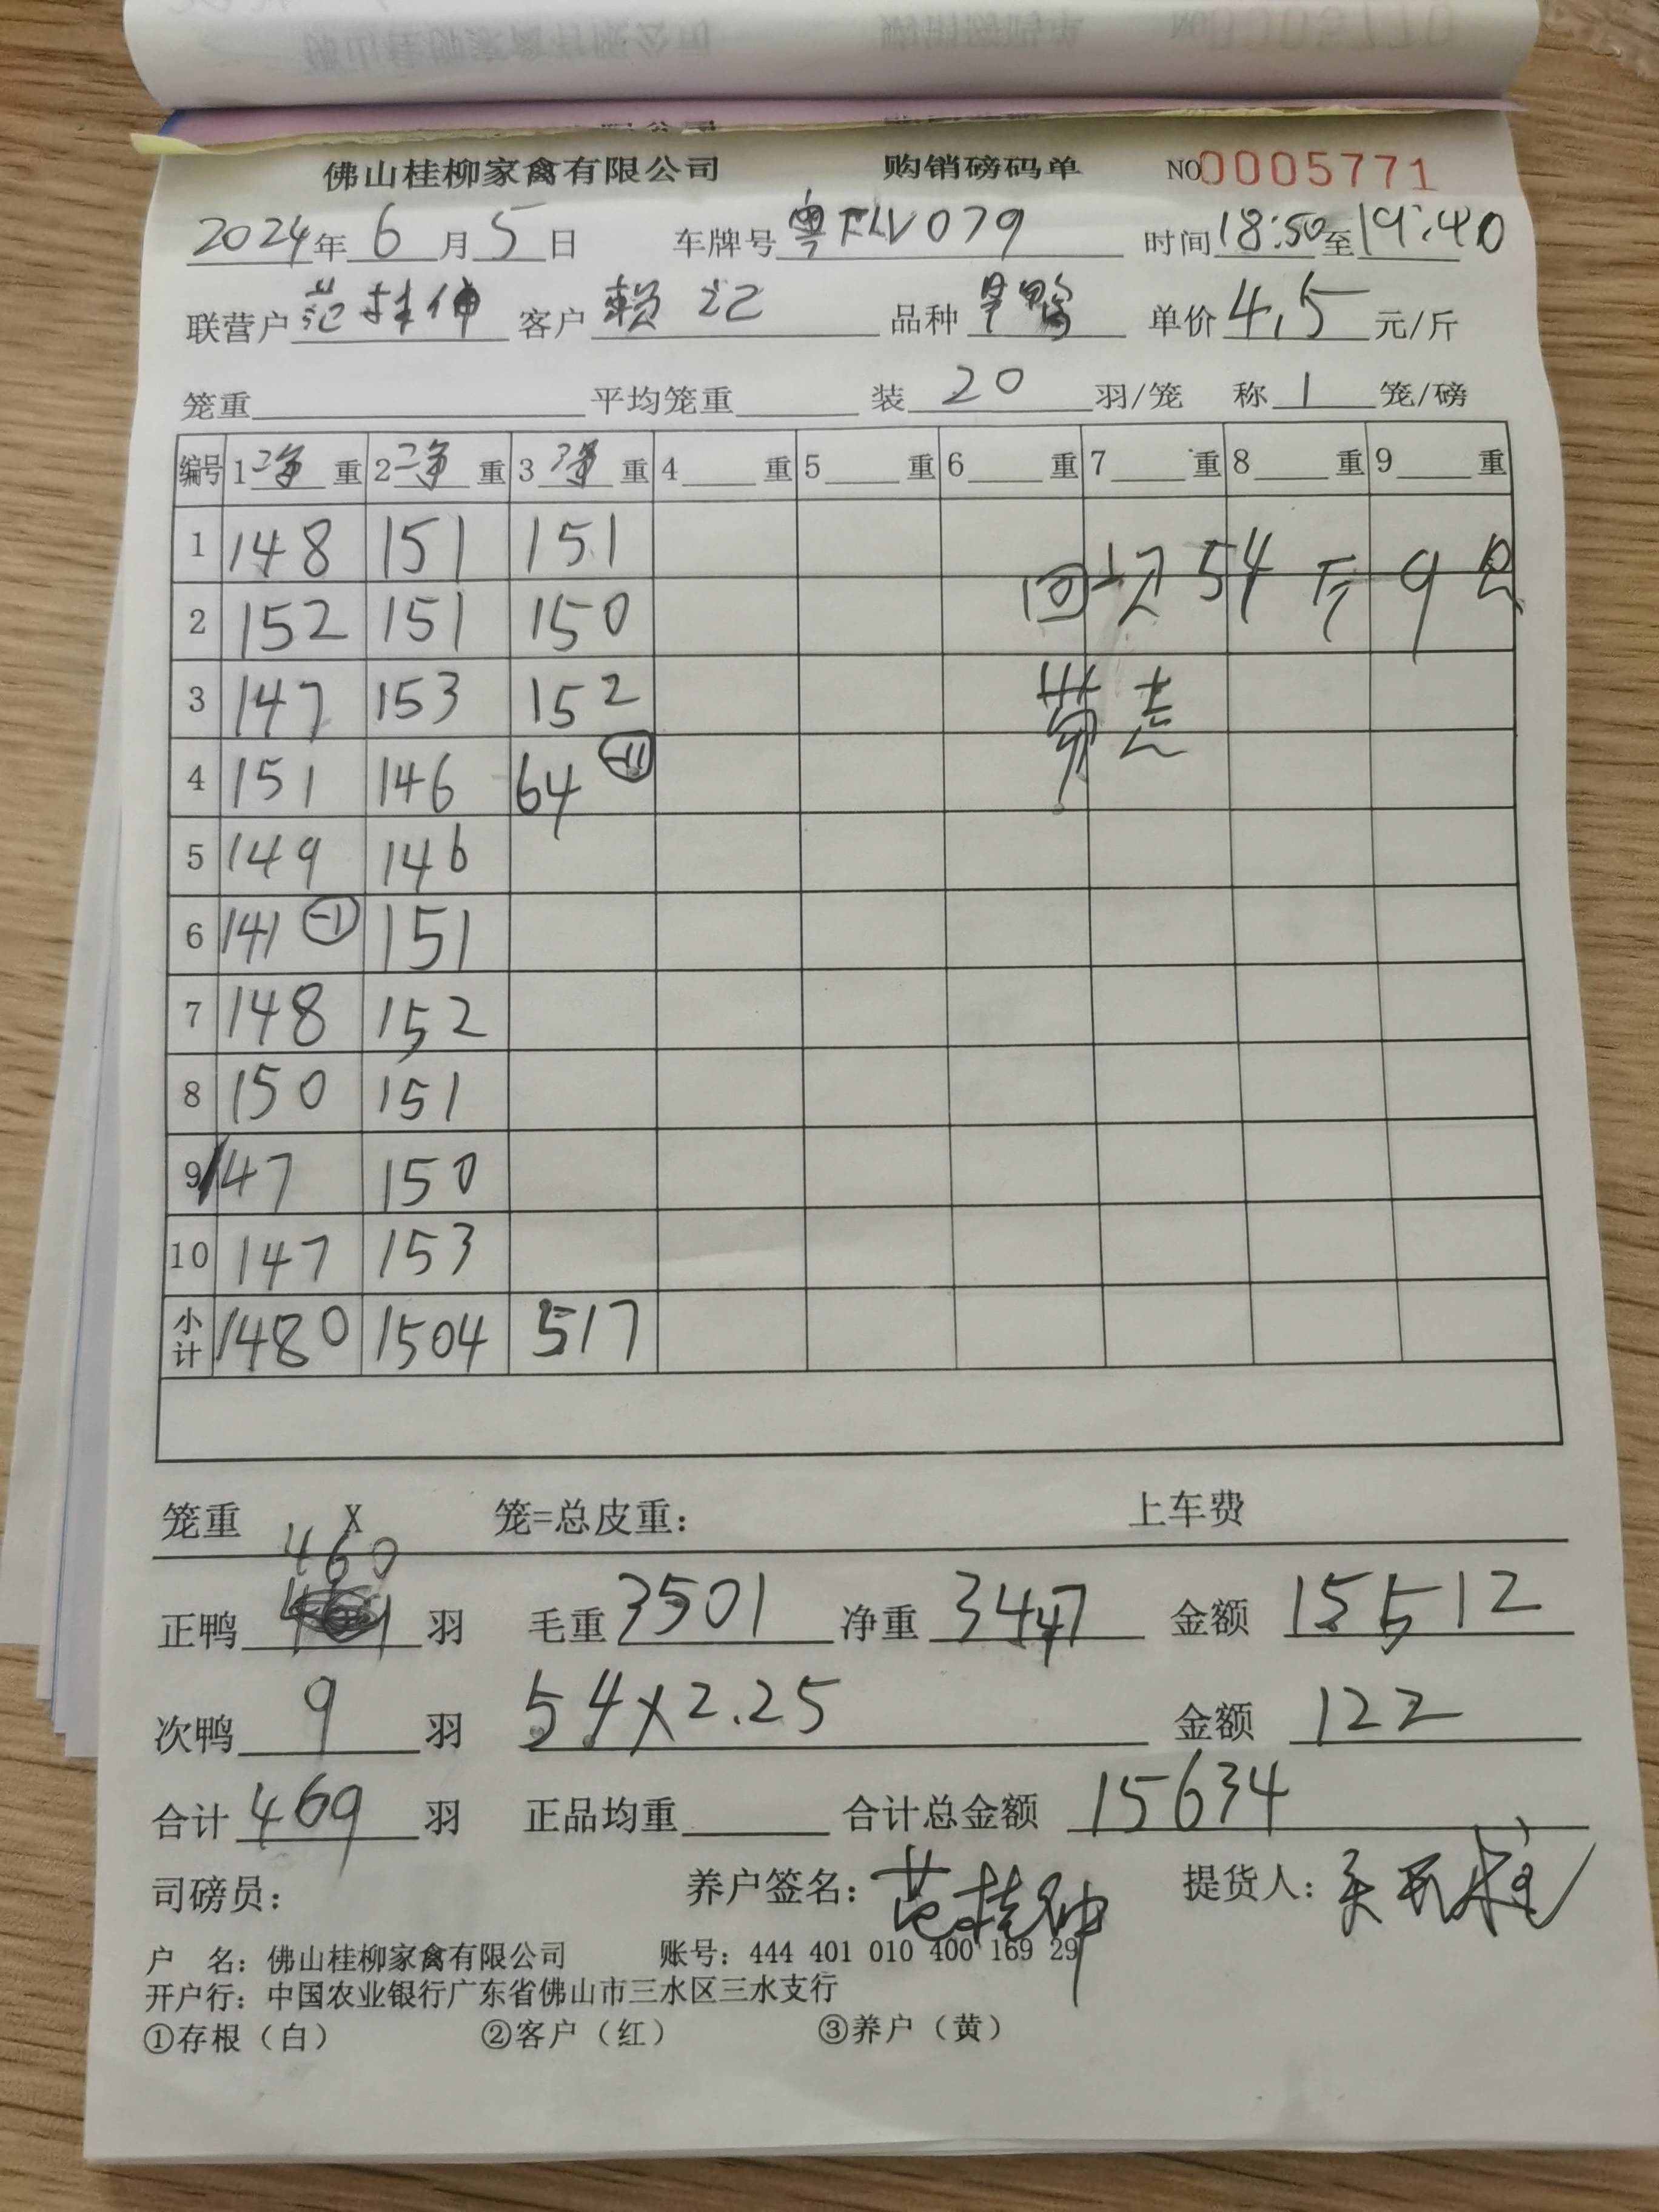 佛山桂柳家禽有限公司 购销磅码单 NO 0005771
2024年 6 月 5 日 车牌号 粤FLV079 时间 18:50 至 19:40
联营户 范桂伸 客户 赖记 品种 旱鸭 单价 4.5 元/斤
笼重 平均笼重 装 20 羽/笼 称 1 笼/磅
编号 1 净 重 2 净 重 3 净 重 4 重 5 重 6 重 7 重 8 重 9 重
1 148 151 151
回次54斤9只
2 152 151 150
3 147 153 152
4 151 146 64 -11
5 149 146
6 141 -1 151
7 148 152
8 150 151
9 147 150
10 147 153
小计 1480 1504 517
笼重 X 笼=总皮重: 上车费
460
正鸭 羽 毛重 3501 净重 3447 金额 15512
次鸭 9 羽 54x2.25 金额 122
合计 469 羽 正品均重 合计总金额 15634
司磅员: 养户签名: 范桂伸 提货人:
户 名: 佛山桂柳家禽有限公司 账号: 444 401 010 400 169 29
开户行: 中国农业银行广东省佛山市三水区三水支行
①存根（白） ②客户（红） ③养户（黄）